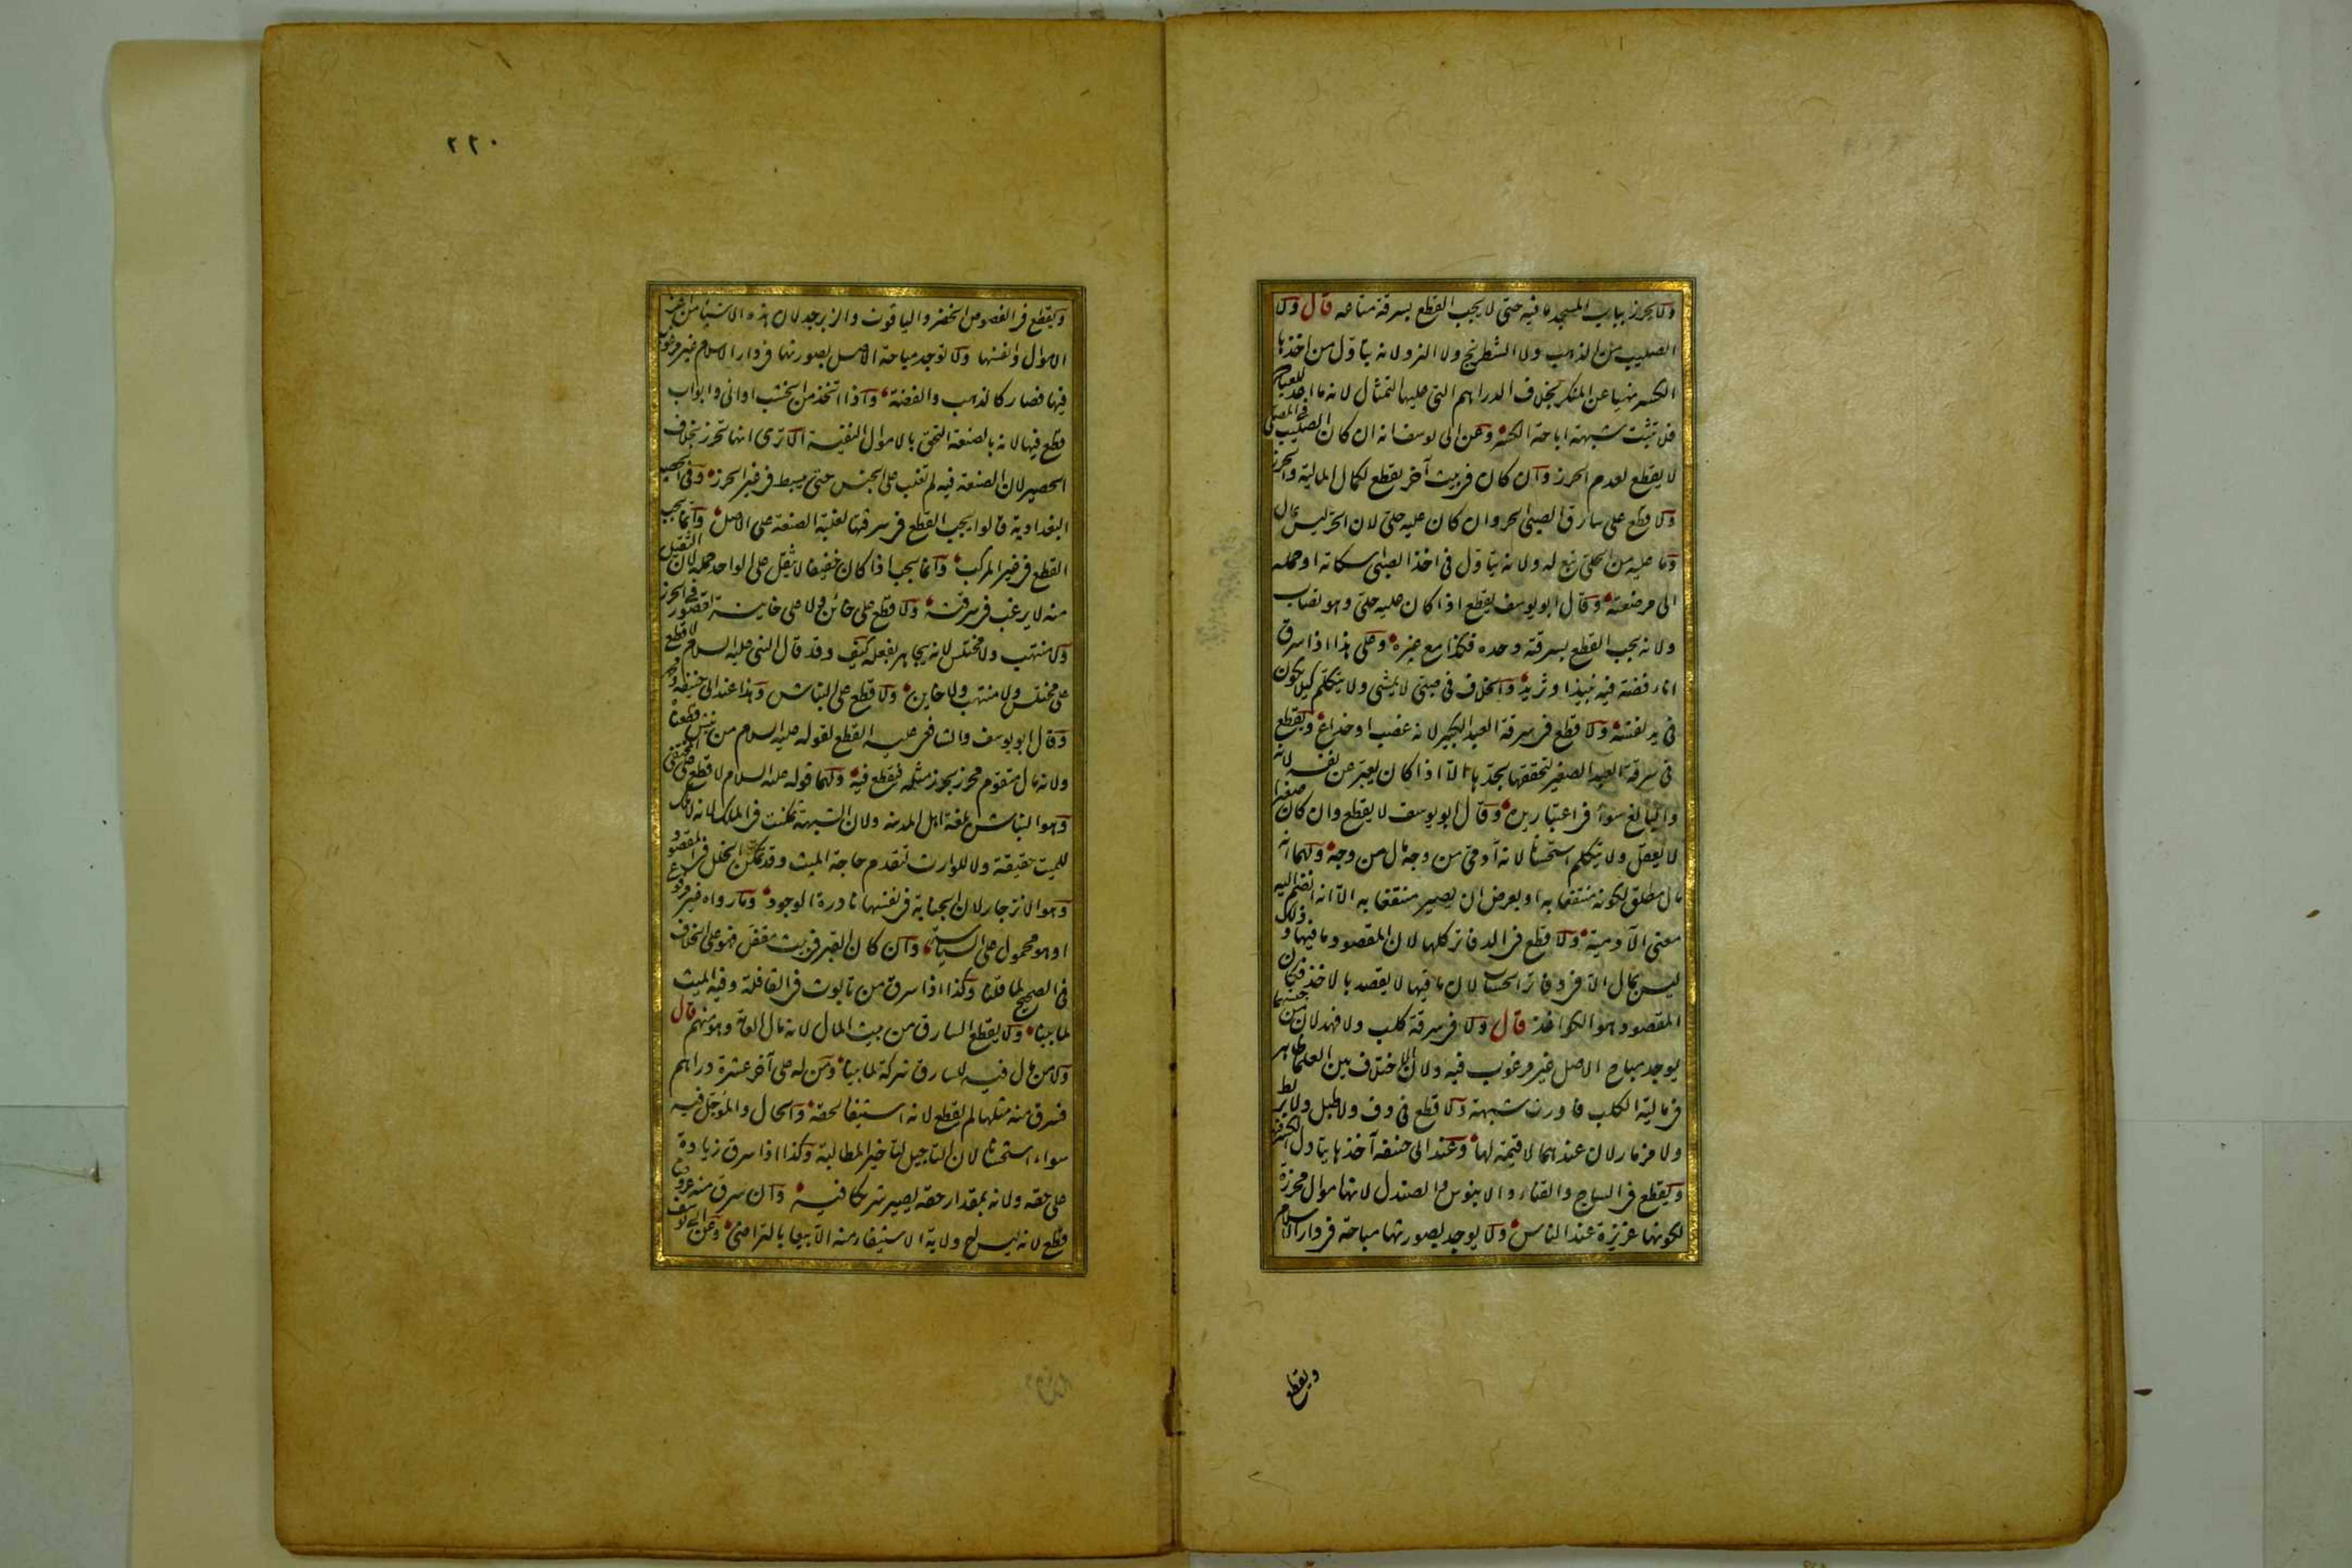 ولا يحرز بباب المسجد ما فيه حتى لا يجب القطع بسرقة متاعه قال ولا
الصليب من الذهب ولا الشطرنج ولا النرد لانه يتأول من اخذها
الكسر نهيا عن المنكر بخلاف الدراهم التي عليها التمثال لانه ما اعد للعبادة
فلا تثبت شبهة اباحة الكسر وعن ابي يوسف انه ان كان الصليب في المصلى
لا يقطع لعدم الحرز وان كان في بيت آخر يقطع لكمال المالية والحرز
ولا قطع على سارق الصبي الحر وان كان عليه حلي لان الحر ليس بمال
وما عليه من الحلي تبع له ولانه يتأول في اخذ الصبي اسكاته او حمله
الى مرضعته وقال ابو يوسف يقطع اذا كان عليه حلي وهو نصاب
ولانه يجب القطع بسرقته وحده فكذا مع غيره وعلى هذا اذا سرق
اناء فضة فيه نبيذ او ثريد والخلاف في صبي لا يمشي ولا يتكلم كيلا يكون
في يد نفسه ولا قطع في سرقة العبد الكبير لانه غصب او خداع ويقطع
في سرقة العبد الصغير لتحققها بحدها الا اذا كان يعبر عن نفسه لانه
والبالغ سواء في اعتبار يده وقال ابو يوسف لا يقطع وان كان صغيرا
لا يعقل ولا يتكلم استحسانا لانه آدمي من وجه مال من وجه ولهما انه
مال مطلق لكونه منتفعا به او بعرض ان يصير منتفعا به الا انه انضم اليه
معنى الآدمية ولا قطع في الدفاتر كلها لان المقصود ما فيها وذلك
ليس بمال الا في دفاتر الحساب لان ما فيها لا يقصد بالاخذ فكان
المقصود هو الكواغذ قال ولا في سرقة كلب ولا فهد لان من جنسهما
يوجد مباح الاصل غير مرغوب فيه ولان الاختلاف بين العلماء ظاهر
في مالية الكلب فاورث شبهة ولا قطع في دف ولا طبل ولا بربط
ولا مزمار لان عندهما لا قيمة لها وعند ابي حنيفة آخذها يتأول الكسر فيها
ويقطع في الساج والقناء والابنوس والصندل لانها اموال محرزة
لكونها عزيزة عند الناس ولا يوجد بصورتها مباحة في دار الاسلام
ويقطع
٢٢٠
ويقطع في الفصوص الخضر والياقوت والزبرجد لان هذه الاشياء من اعز
الاموال وانفسها ولا توجد مباحة الاصل بصورتها في دار الاسلام غير مرغوب
فيها فصار كالذهب والفضة واذا اتخذ من الخشب اواني وابواب
قطع فيها لانه بالصنعة التحق بالاموال النفيسة الا ترى انها تحرز بخلاف
الحصير لان الصنعة فيه لم تغلب على الجنس حتى يبسط في غير الحرز وفي الحصير
البغدادية قالوا يجب القطع في سرقتها لغلبة الصنعة على الاصل وانما يجب
القطع في غير المركب وانما يجب اذا كان خفيفا لا يثقل على الواحد حمله لان الثقيل
منه لا يرغب في سرقته ولا قطع على خائن ولا على خائنة لقصور في الحرز
ولا منتهب ولا مختلس لانه يجاهر بفعله كيف وقد قال النبي عليه السلام لا قطع
على مختلس ولا منتهب ولا خاين ولا قطع على النباش وهذا عند ابي حنيفة ومحمد
وقال ابو يوسف والشافعي عليه القطع لقوله عليه السلام من نبش قطعناه
ولانه مال متقوم محرز يحرز مثله فيقطع فيه ولهما قوله عليه السلام لا قطع على المختفي
وهو النباش بلغة اهل المدينة ولان الشبهة تمكنت في الملك لانه لا ملك
للميت حقيقة ولا للوارث لتقدم حاجة الميت وقد تمكن الخلل في المقصود
وهو الانزجار لان الجناية في نفسها نادرة الوجود وما رواه غير مرفوع
او هو محمول على السياسة وان كان القبر في بيت مقفل فهو على الخلاف
في الصحيح لما قلنا وكذا اذا سرق من تابوت في القافلة وفيه الميت
لما بينا ولا يقطع السارق من بيت المال لانه مال العامة وهو منهم قال
ولا من مال فيه للسارق شركة لما بينا ومن له على آخر عشرة دراهم
فسرق منه مثلها لم يقطع لانه استيفاء لحقه والحال والمؤجل فيه
سواء استحسانا لان التأجيل لتأخير المطالبة وكذا اذا سرق زيادة
على حقه ولانه بمقدار حقه يصير شريكا فيه وان سرق منه عروضا
قطع لانه ليس له ولاية الاستيفاء منه الا بيعا بالتراضي وعن ابي يوسف